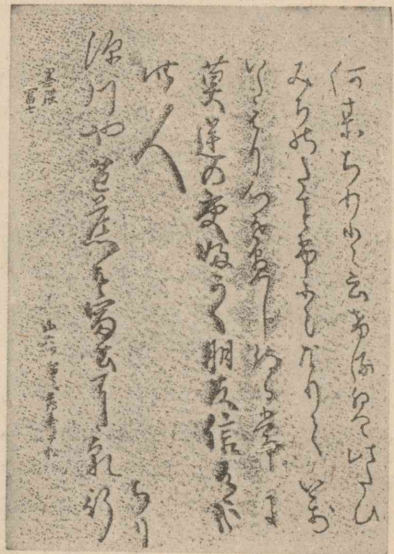 何某ちりと云けるは此たひ
みちのたすけとなりて万
いたはり心を尽し侍る常に
莫逆の交ふかく朋友信有哉
此人
ちり
深川や芭蕉を富士に預行
富士